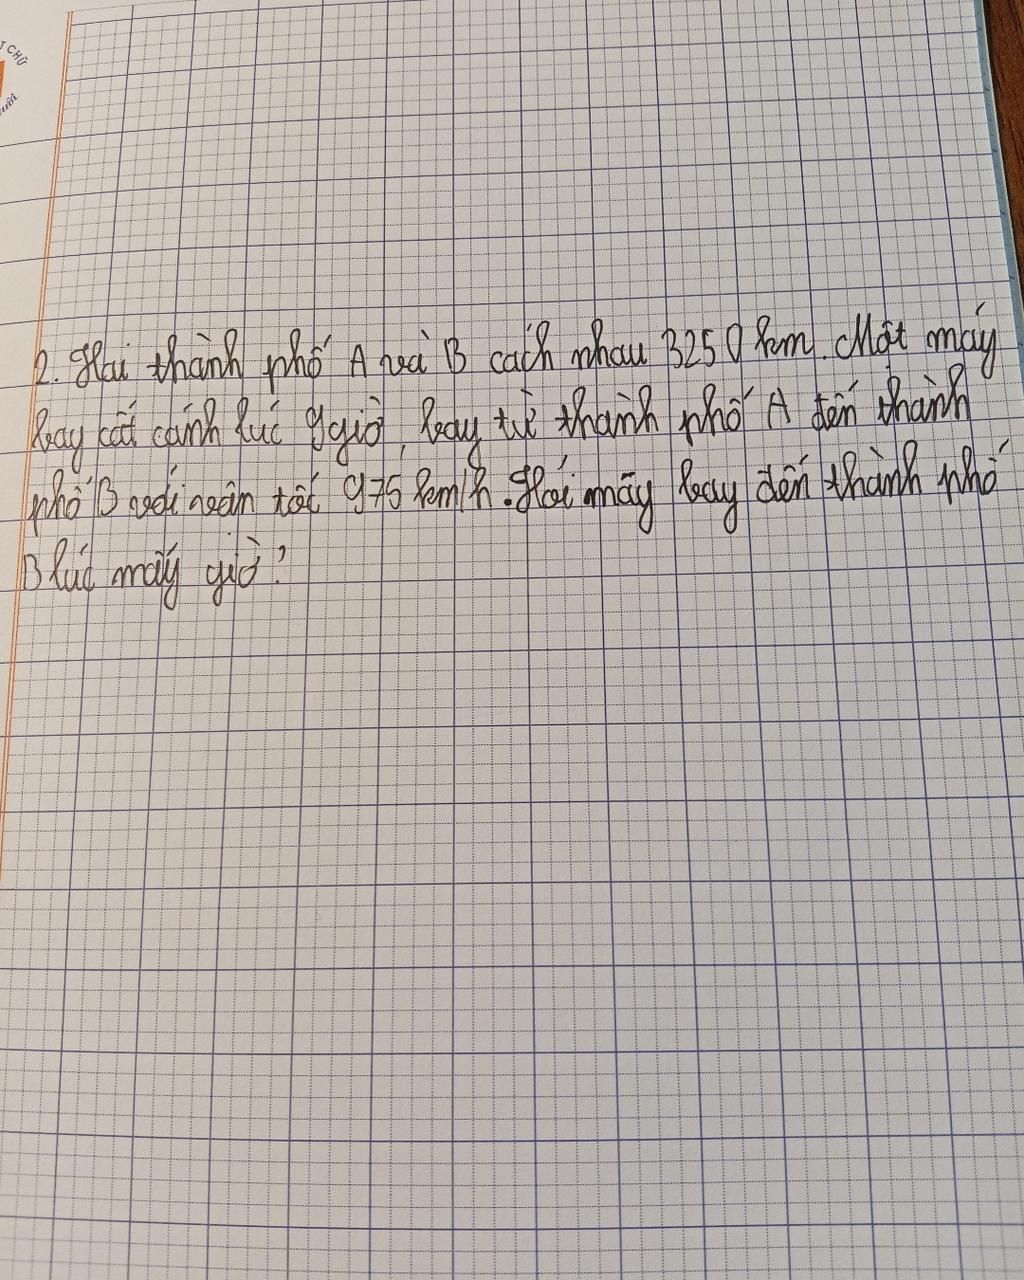 T CHỮ
2. Hai thành phố A và B cách nhau 3250 km. Một máy
bay cất cánh lúc 9 giờ, bay từ thành phố A đến thành
phố B với vận tốc 975 km/h. Hỏi máy bay đến thành phố
B lúc mấy giờ?